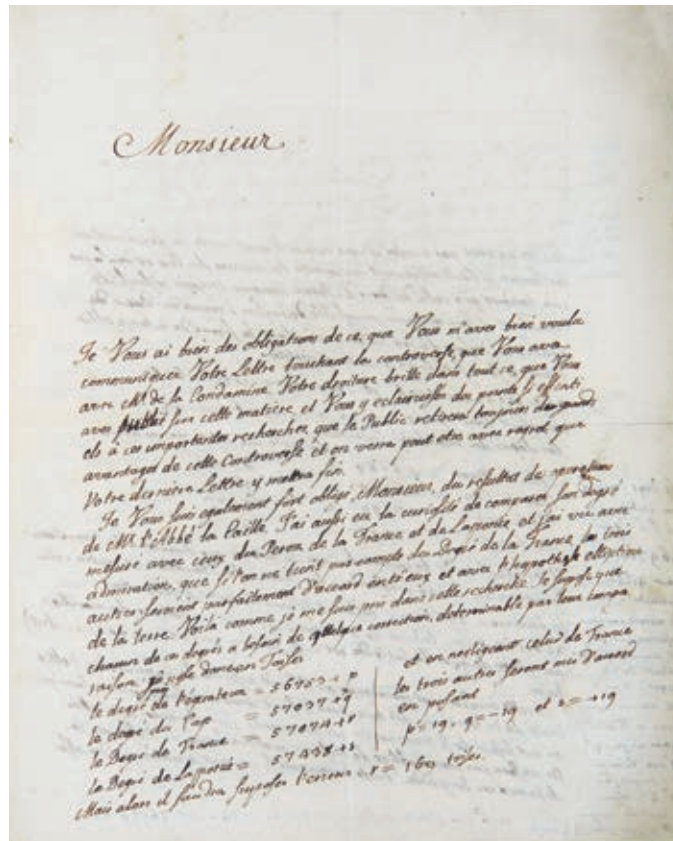 Monsieur
Je Vous ai bien des obligations de ce, que Vous m'aves bien voulu
communiquer Votre Lettre touchant la controverse, que Vous aves
avec Mr. de la Condamine. Votre droiture brille dans tout ce, que Vous
aves publié sur cette matière, et Vous y eclaircisses des points si essenti
els à ces importantes recherches, que le Public retirera toujours de grands
avantages de cette Controverse et on verra peut etre avec regret que
Votre derniere Lettre y mettra fin.
Je Vous suis egalement fort obligé, Monsieur, des resultats des operations
de Mr. l'Abbé la Caille. J'ai aussi eu la curiosité de comparer son degré
mesuré avec ceux du Perou de la France et de Laponie, et j'ai vu avec
admiration, que si l'on ne tient pas compte du degré de la France, les trois
autres seroient parfaitement d'accord entr'eux et avec l'hypothese elliptique
de la terre. Voilà comme je me suis pris dans cette recherche. Je suppose que
chacun de ces degrés a besoin de quelque correction, determinable par leur compa
raison, je pose donc en Toises
le degré de l'equateur = 56753 + p
le degré du Cap = 57037 + q
le Degré de France = 57074 + r
le Degré de Laponie = 57438 + s
et en negligeant celui de France
les trois autres seront mis d'accord
en posant
p = 19, q = -19 et s = +19
Mais alors il faudra supposer l'erreur r = 169 toises